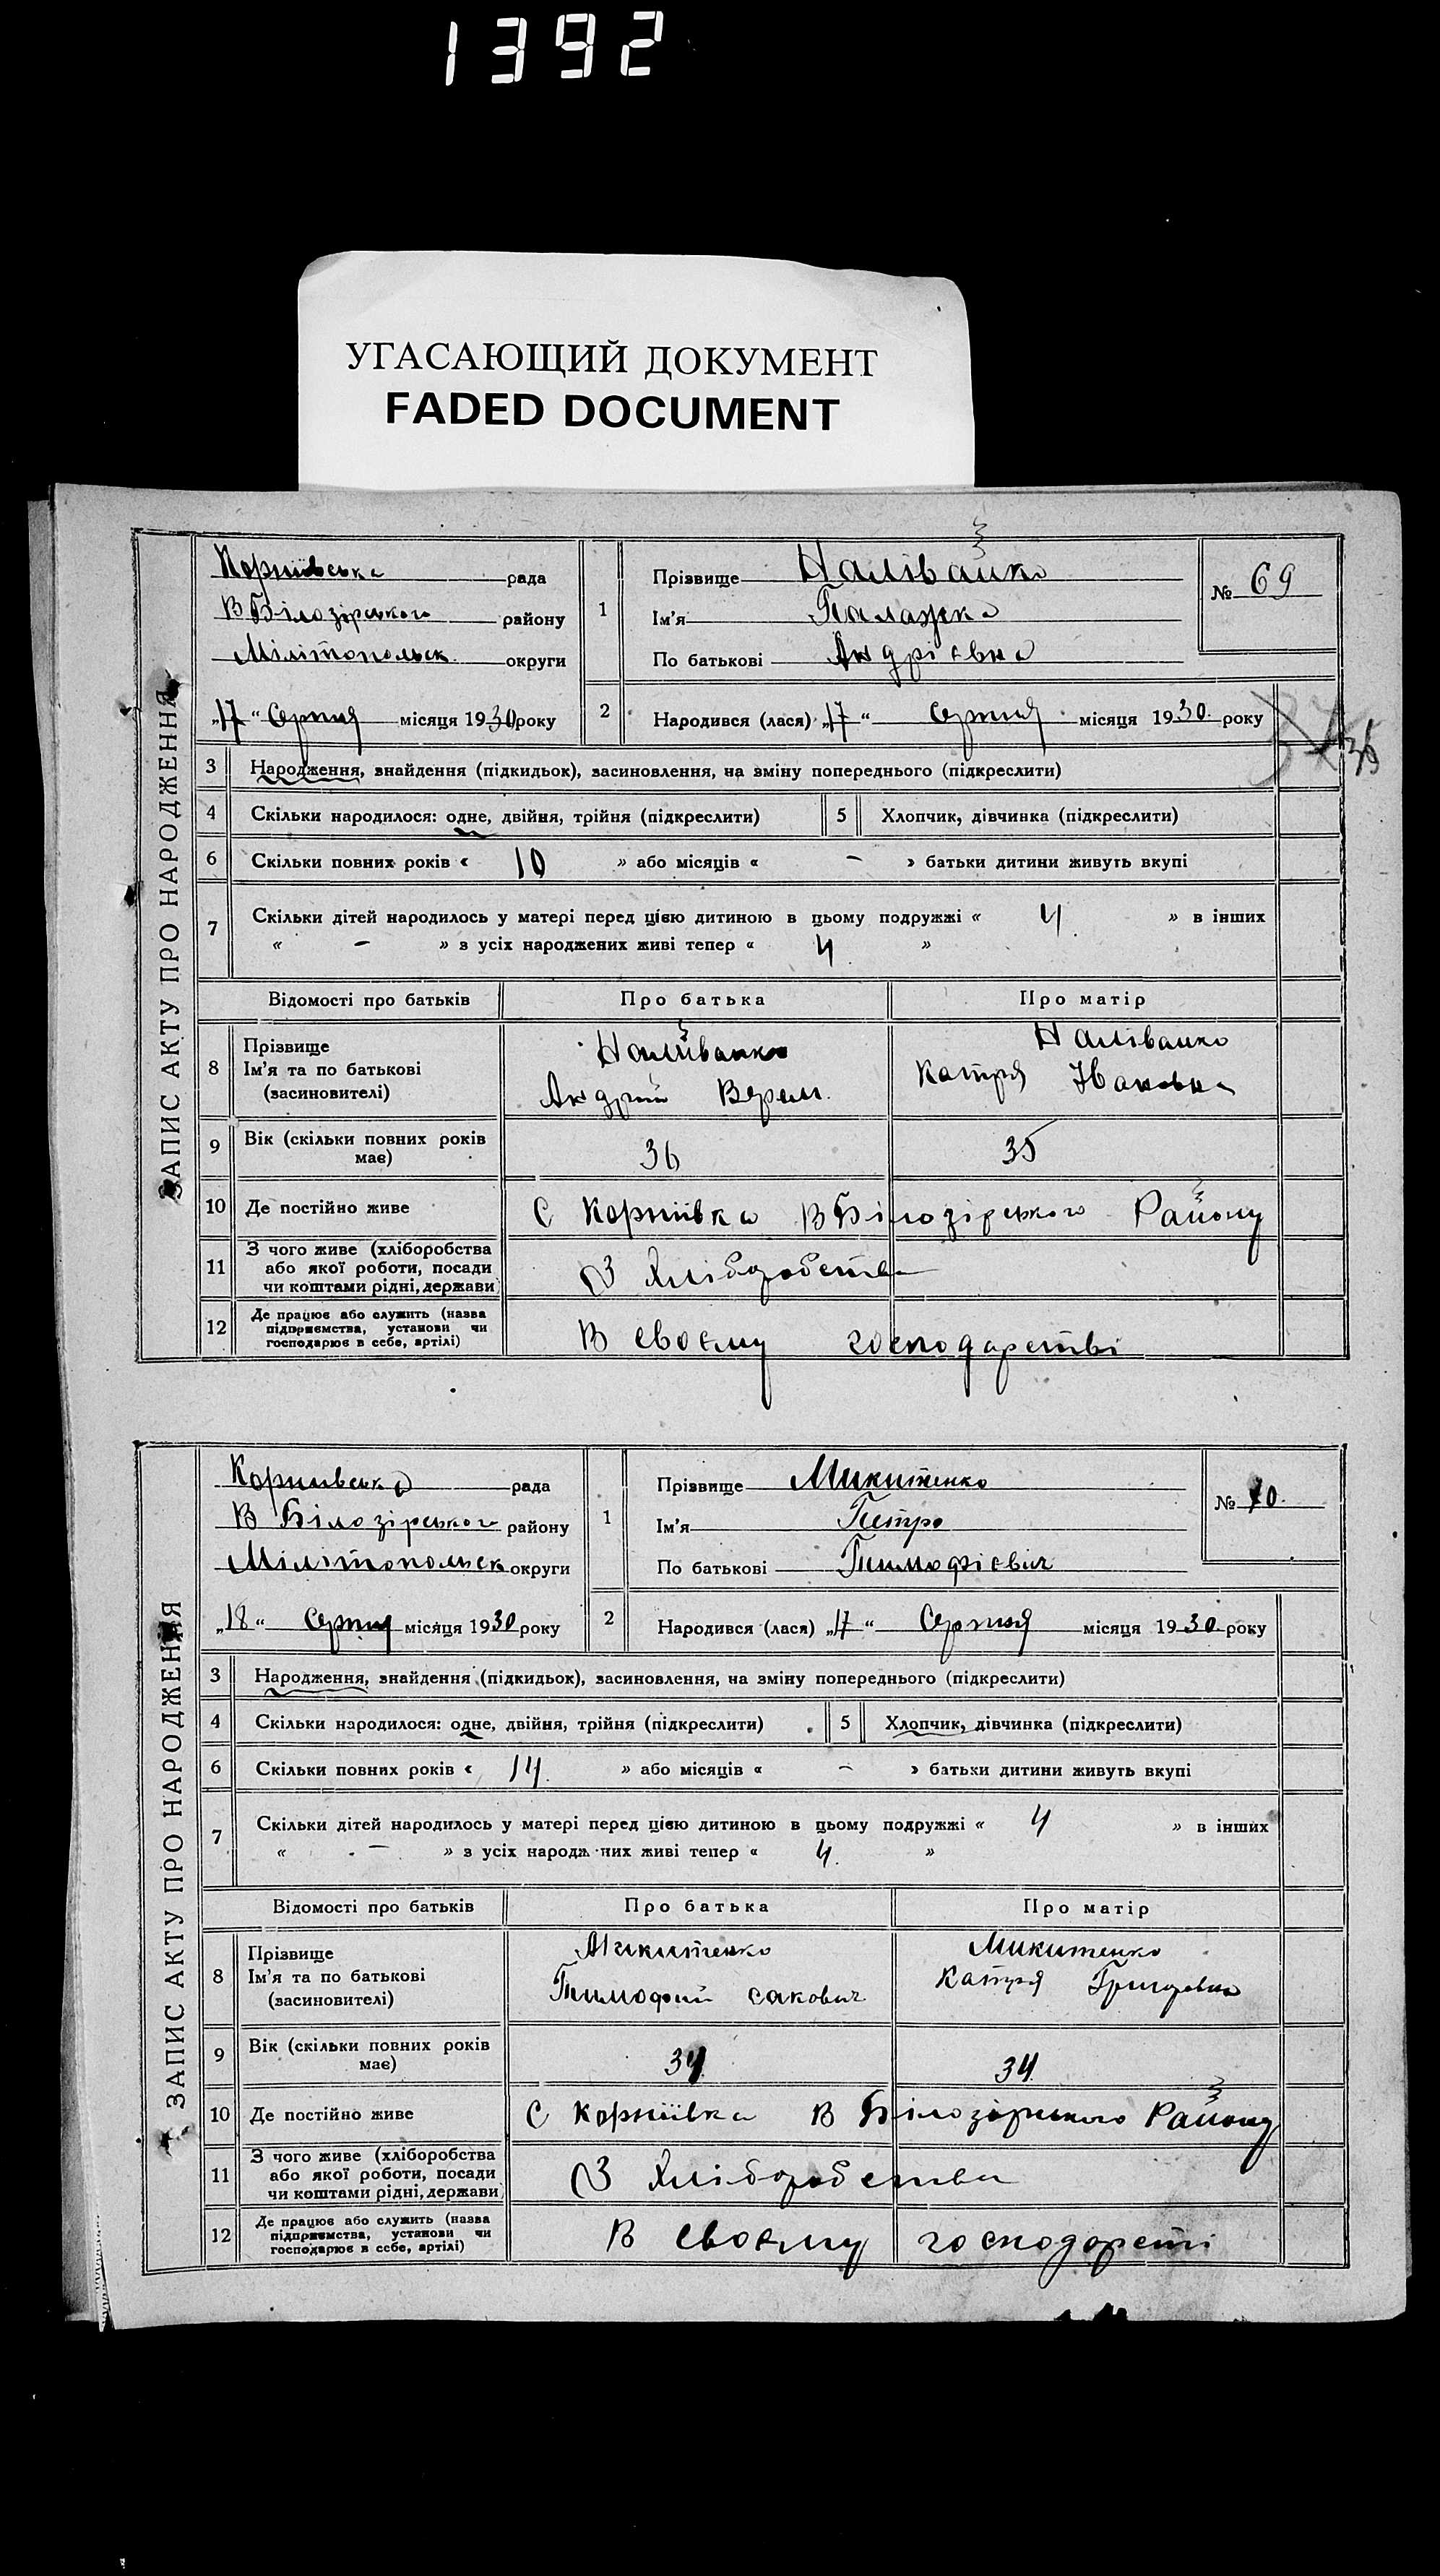 1392
УГАСАЮЩИЙ ДОКУМЕНТ
FADED DOCUMENT
ЗАПИС АКТУ ПРО НАРОДЖЕННЯ
Корніївська рада
В Білозірського району
Мілітопольск округи
„17“ Серпня місяця 1930 року
1
Прізвище Налівайко
Ім'я Палажка
По батькові Андрієвна
№ 69
2 Народився (лася) „17“ Серпня місяця 1930 року
3 Народження, знайдення (підкидьок), засиновлення, на зміну попереднього (підкреслити)
4 Скільки народилося: одне, двійня, трійня (підкреслити) 5 Хлопчик, дівчинка (підкреслити)
6 Скільки повних років « 10 » або місяців « – » батьки дитини живуть вкупі
7 Скільки дітей народилось у матері перед цією дитиною в цьому подружжі « 4 » в інших
« – » з усіх народжених живі тепер « 4 »
Відомості про батьків Про батька Про матір
8 Прізвище Наліивайко Наліванко
Ім'я та по батькові Андрій Верем. Катря Ивановна
(засиновителі)
9 Вік (скільки повних років має) 36 35
10 Де постійно живе С Корніївка В Білозірського Району
11 З чого живе (хліборобства
або якої роботи, посади
чи коштами рідні, держави) З Хліборобства
12 Де працює або служить (назва
підприємства, установи чи
господарює в себе, артілі) В своєму господарстві
ЗАПИС АКТУ ПРО НАРОДЖЕННЯ
Корнивська рада
В Білозірського району
Мілітопольск округи
„18“ Серпня місяця 1930 року
1
Прізвище Микитенко
Ім'я Петро
По батькові Тимофієвіч
№ 70
2 Народився (лася) „17“ Серпня місяця 1930 року
3 Народження, знайдення (підкидьок), засиновлення, на зміну попереднього (підкреслити)
4 Скільки народилося: одне, двійня, трійня (підкреслити) 5 Хлопчик, дівчинка (підкреслити)
6 Скільки повних років « 14 » або місяців « – » батьки дитини живуть вкупі
7 Скільки дітей народилось у матері перед цією дитиною в цьому подружжі « 4 » в інших
« – » з усіх народж них живі тепер « 4 »
Відомості про батьків Про батька Про матір
8 Прізвище Микитенко Микитенко
Ім'я та по батькові Тимофий сакович Катря Григоревна
(засиновителі)
9 Вік (скільки повних років має) 34 34
10 Де постійно живе С Корніївка В Білозірского Району
11 З чого живе (хліборобства
або якої роботи, посади
чи коштами рідні, держави) З Хліборобства
12 Де працює або служить (назва
підприємства, установи чи
господарює в себе, артілі) В своєму господорсті